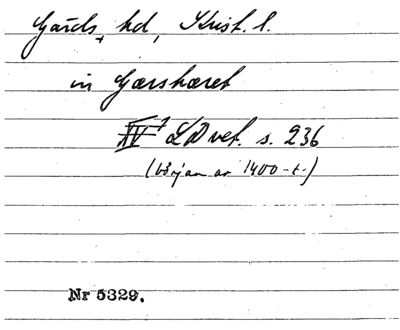 Gärds hd, Krist. l.
in Gærshæret
XV¹ LDvet. s. 236
(början av 1400-t.)
Nr 5329.